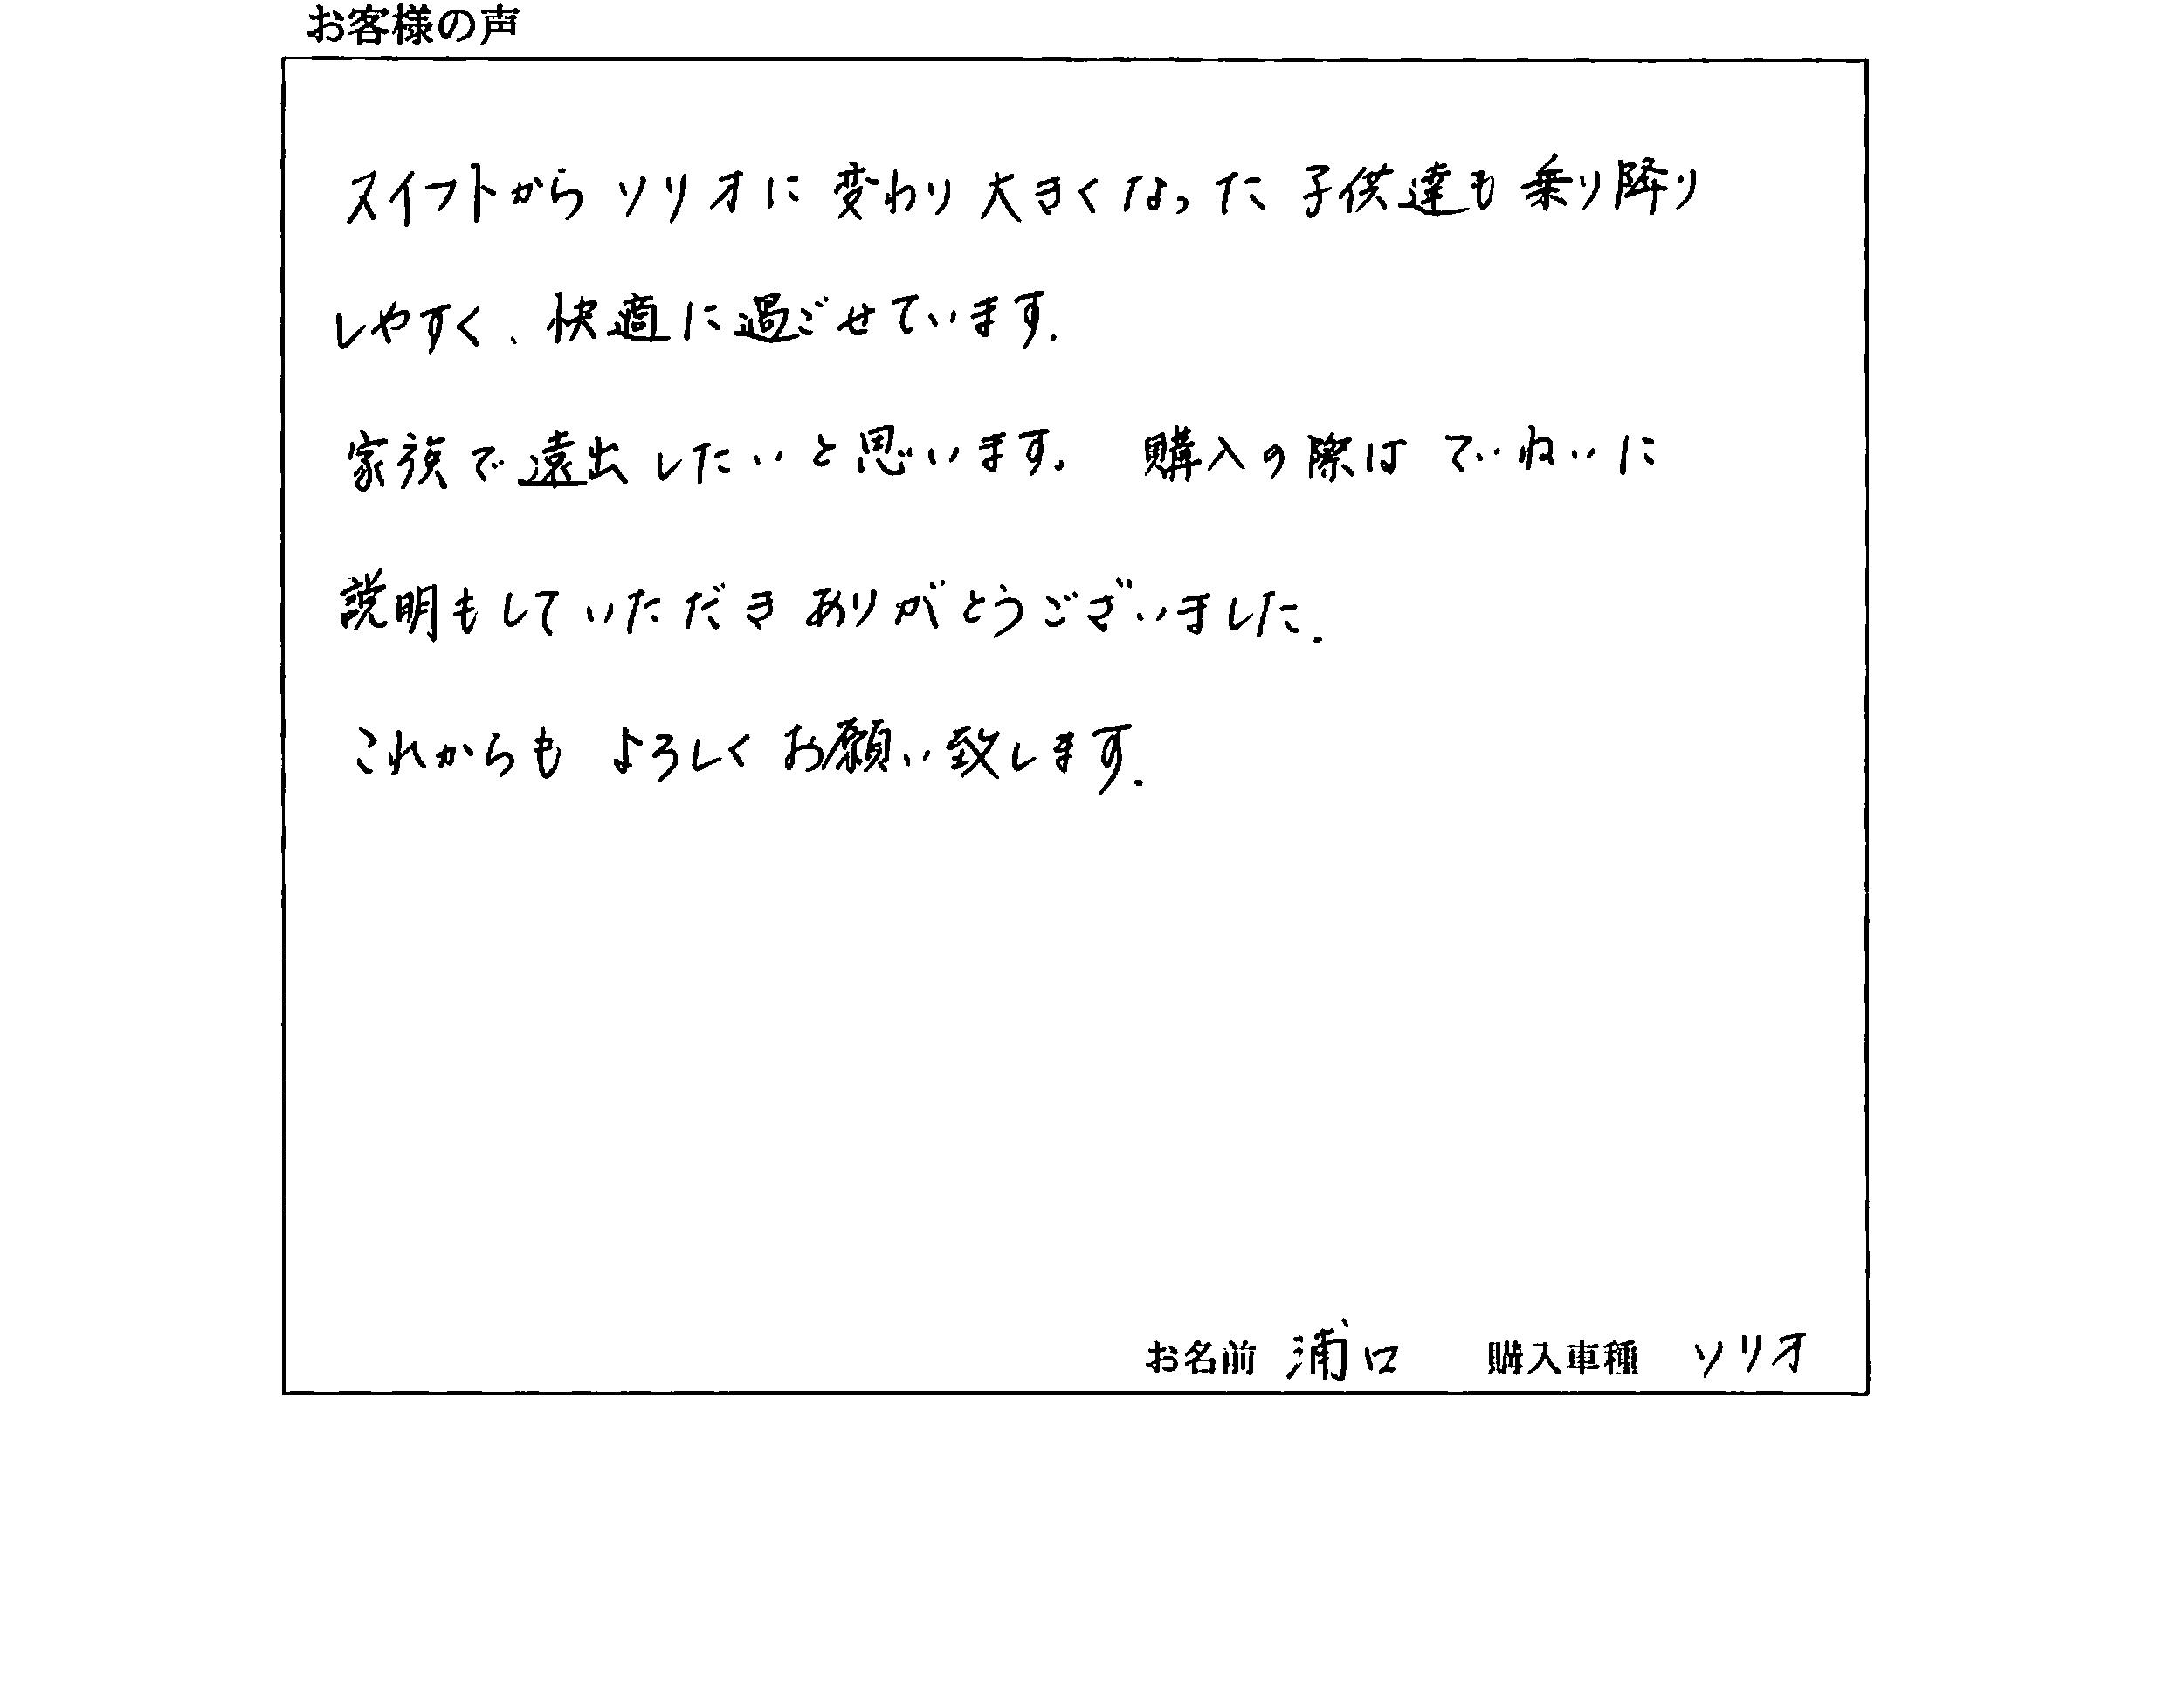 お客様の声
スイフトからソリオに変わり大きくなった子供達も乗り降り
しやすく、快適に過ごせています.
家族で遠出したいと思います。 購入の際はていねいに
説明もしていただきありがとうございました.
これからも よろしくお願い致します.
お名前 浦口 購入車種 ソリオ